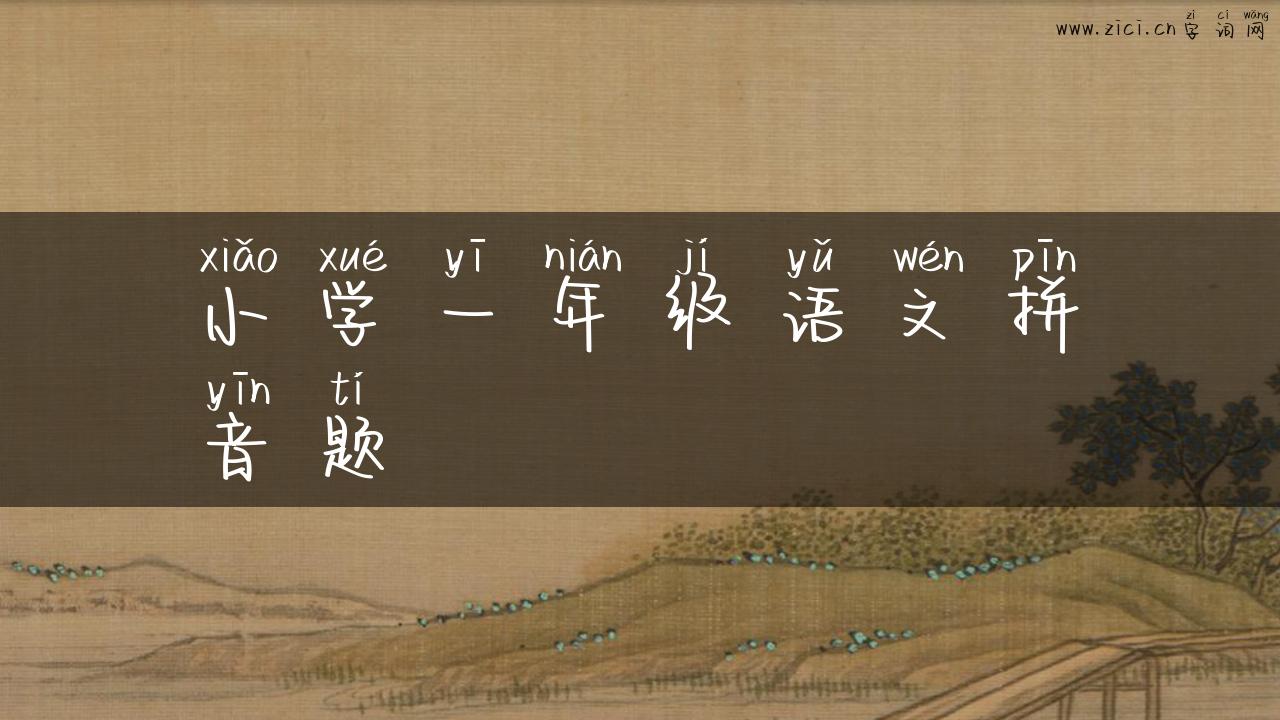 zì cí wǎng
www.zici.cn 字词网
xiǎo xué yī nián jí yǔ wén pīn
小学一年级语文拼
yīn tí
音题